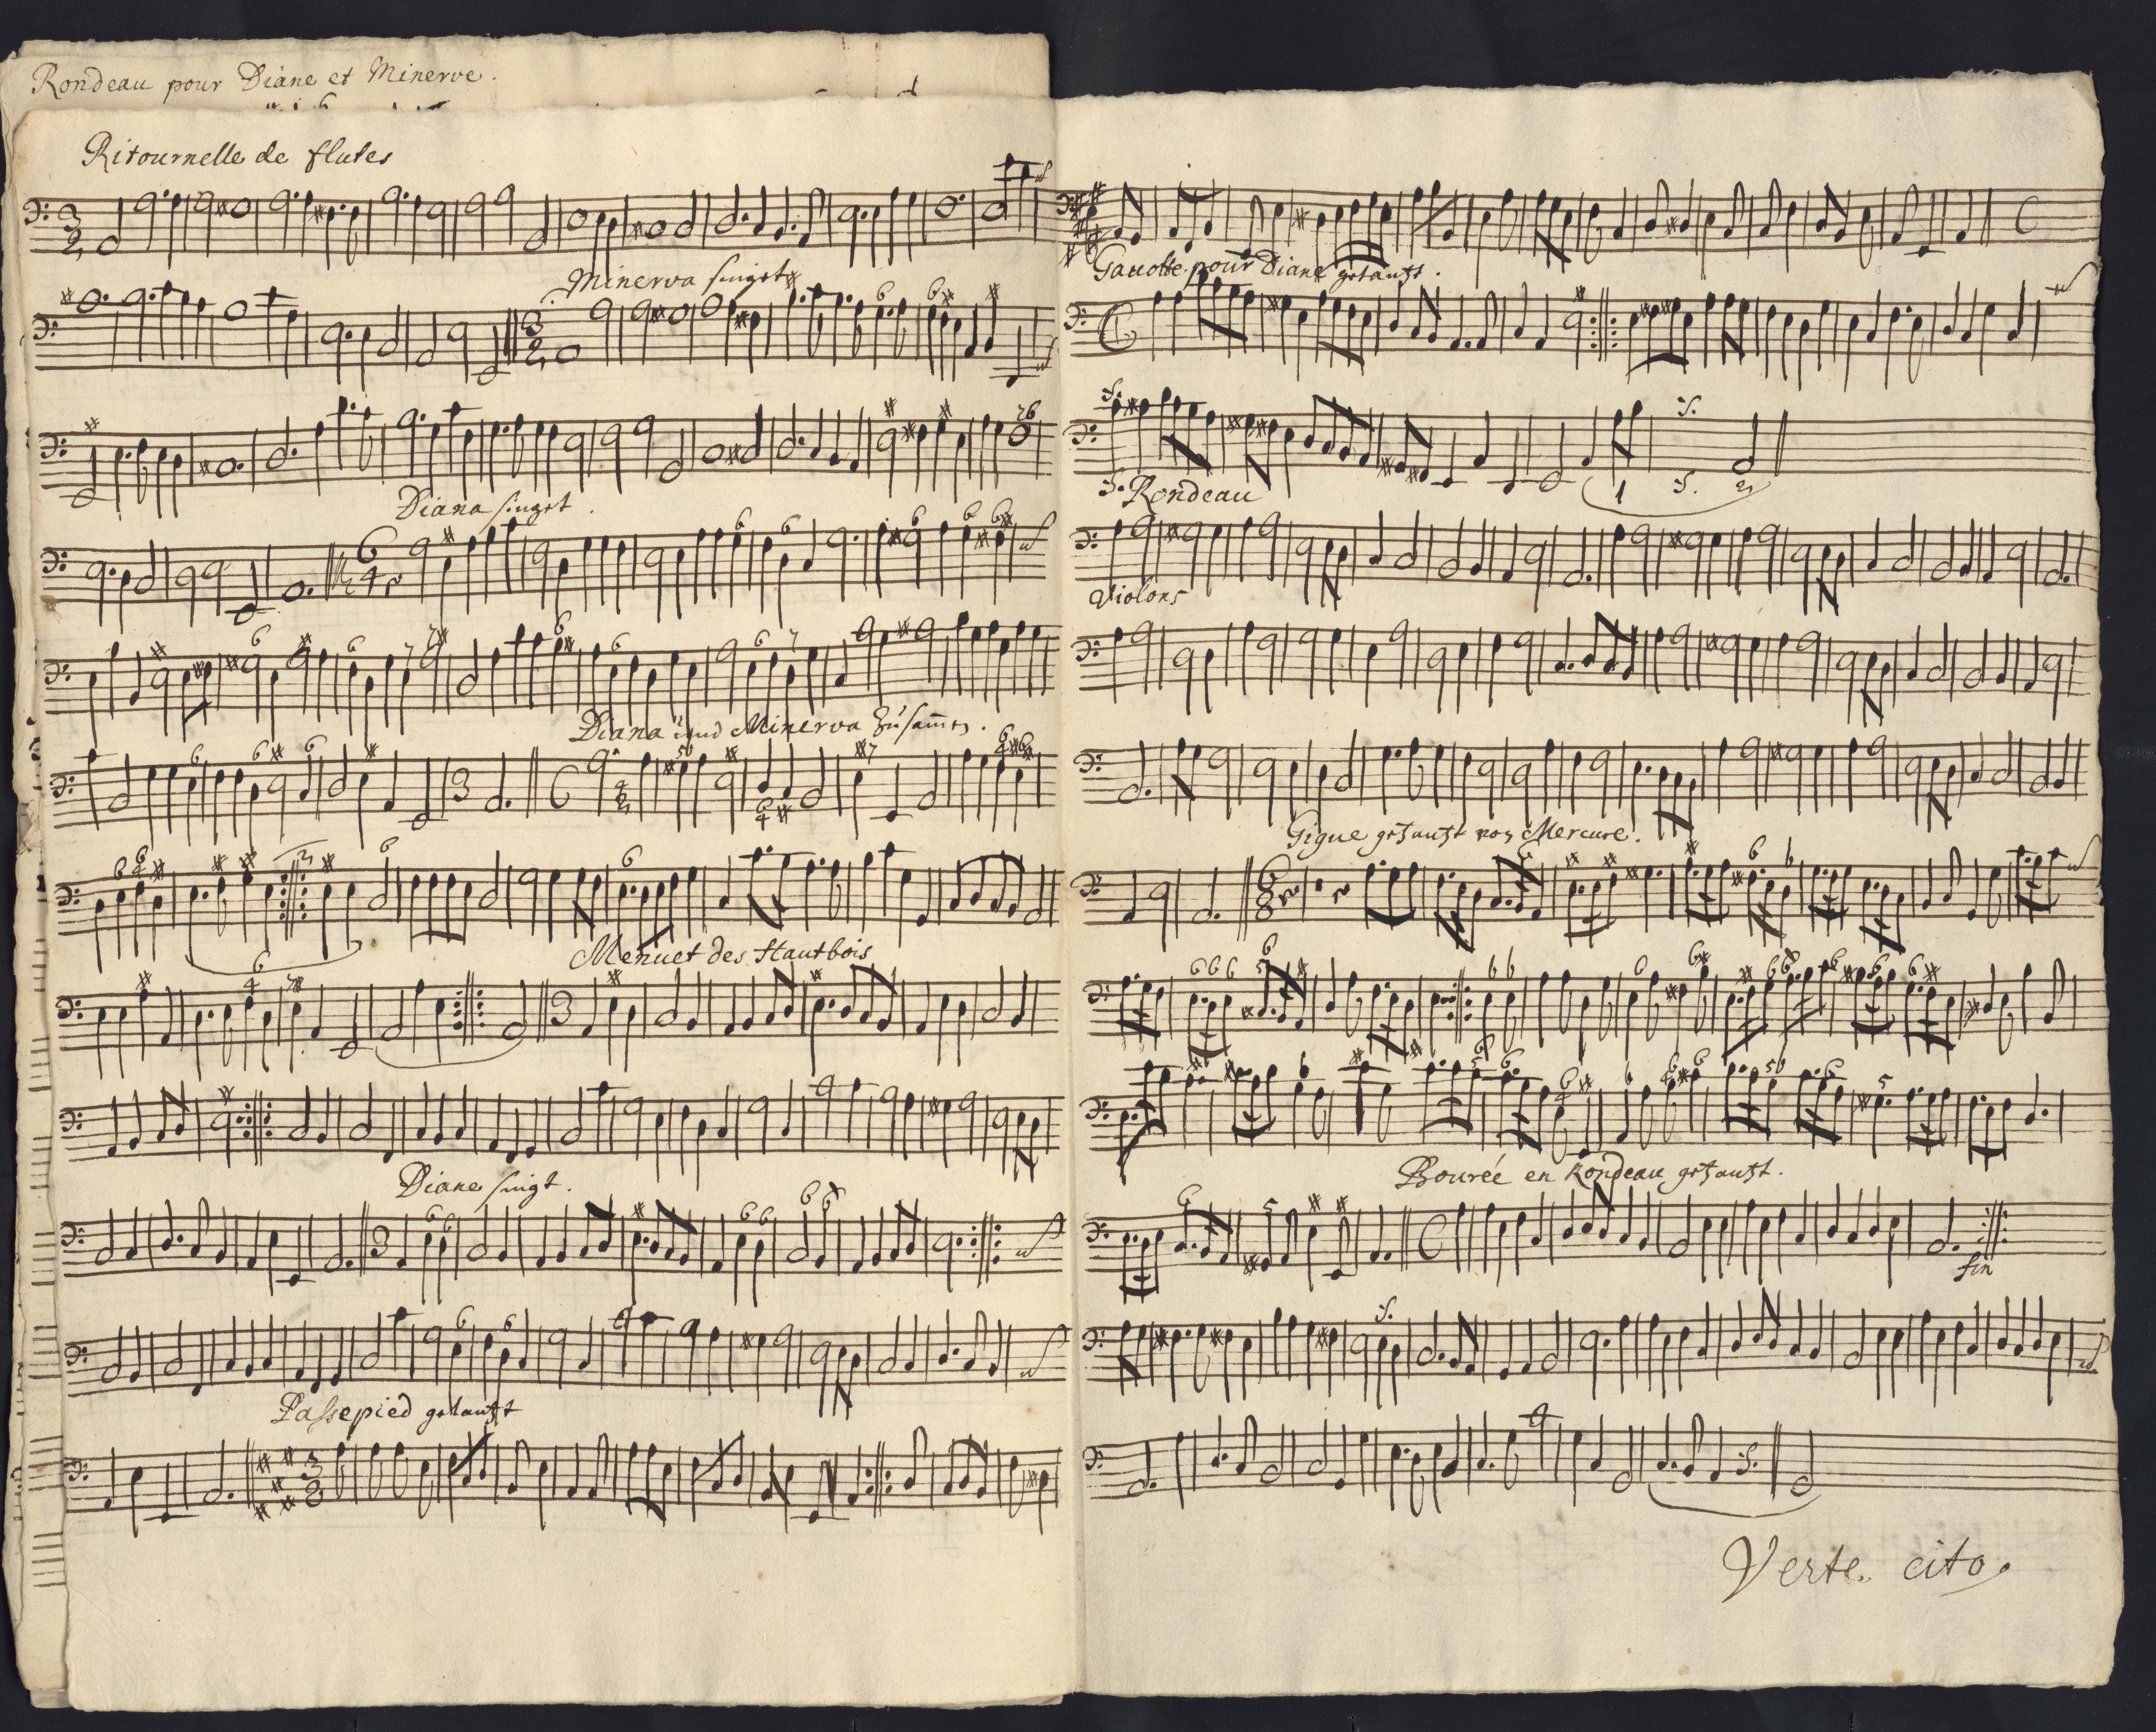 Rondeau pour Diane et Minerve.
Ritournelle de flutes
Minerva singet
Diana singet.
Diana und Minerva Zusam̄en.
Menuet des Hautbois
Diane singt.
Passepied getantzt
Gavotte pour Diane getantzt.
Rondeau
Violons
Gigue getantzt von Mercure.
Bourée en Rondeau getantzt.
fin
Verte cito